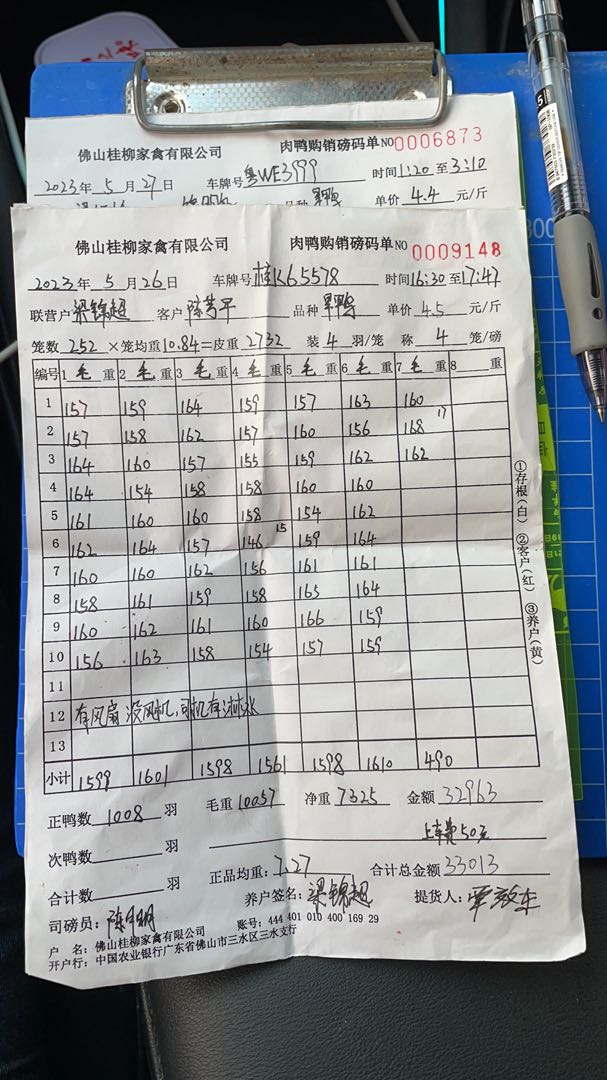 佛山桂柳家禽有限公司 肉鸭购销磅码单 NO 0006873
2023年 5 月 27 日 车牌号 粤WE3999 时间 1:20 至 3:10
单价 4.4 元/斤
佛山桂柳家禽有限公司 肉鸭购销磅码单 NO 0009148
2023年 5 月 26 日 车牌号 桂K65578 时间 16:30 至 17:47
联营户 梁锦超 客户 品种 单价 4.5 元/斤
笼数 252 ×笼均重 10.84 =皮重 2732 装 4 羽/笼 称 4 笼/磅
编号 1 毛 重 2 毛 重 3 毛 重 4 毛 重 5 毛 重 6 毛 重 7 毛 重 8 重
1 157 159 164 159 157 163 160
2 157 158 162 157 160 156 168 17
3 164 160 157 155 159 162 162
4 164 154 158 158 160 160
5 161 160 160 158 154 162
6 162 164 157 146 15 159 164
7 160 160 162 156 161 161
8 158 161 159 158 165 164
9 160 162 161 160 166 159
10 156 163 158 154 157 159
11
12 有风扇 没风机,司机有淋水
13
小计 1599 1601 1598 1561 1598 1610 490
正鸭数 1008 羽 毛重 10057 净重 7325 金额 32963
次鸭数 羽 上车费50元
合计数 羽 正品均重: 7.27 合计总金额 33013
司磅员: 养户签名: 梁锦超 提货人:
户 名: 佛山桂柳家禽有限公司 账号: 444 401 010 400 169 29
开户行: 中国农业银行广东省佛山市三水区三水支行
①存根(白) ②客户(红) ③养户(黄)